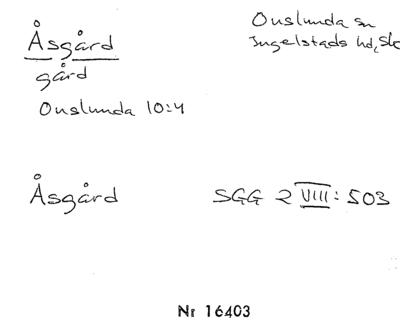 Åsgård
gård
Onslunda 10:4
Onslunda sn
Ingelstads hd, Sk
Åsgård SGG 2 VIII: 503
Nr 16403